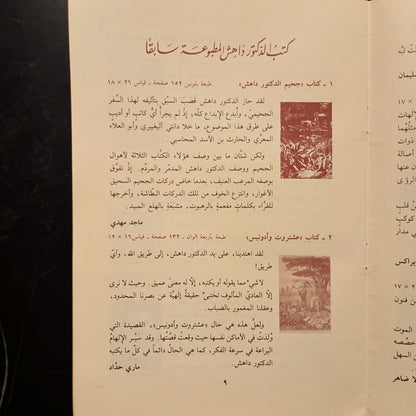 كتب الدكتور داهش المطبوعة سابقاً
١ - كتاب «جحيم الدكتور داهش» طبعة بلونين ١٥٢ صفحة - قياس ٢٦ × ١٨
لقد حاز الدكتور داهش قصب السبق بتأليفه لهذا السفر
الجحيمي، وأبدع الإبداع كله، إذ لم يجرؤ أي كاتب أو أديب
على طرق هذا الموضوع، ما خلا دانتي أليغييري وأبو العلاء
المعري والحارث بن الأسد المحاسبي.
ولكن شتان ما بين وصف هؤلاء الكتاب الثلاثة لأهوال
الجحيم ووصف الدكتور داهش المدمر والمردم. إذ تفوق
بوصفه المرعب العنيف، بعدما خاض دركات الجحيم السحيق
الأغوار، وانتزع الخوف من تلك الدركات البطاشة، وأخرجها
للقراء بكلمات مفعمة بالرهبوت، مشبعة بالهلع المبيد.
ماجد مهدي
٢ - كتاب «عشتروت وأدونيس» طبعة بأربعة ألوان - ١٣٢ صفحة - قياس ١٦ × ١٢
لقد اهتدينا، على يد الدكتور داهش، إلى طريق الله. وأي
طريق!
لا شيء مما يقوله أو يكتبه، إلا له معنى عميق. وحيث لا نرى
إلا العادي المألوف تختبئ حقيقة إلهية عن بصرنا المحدود،
وعقلنا المغمور بالضباب.
ولعل هذه هي حال «عشتروت وأدونيس»، القصيدة التي
ولدت في الأماكن نفسها حيث وقعت قصتها. وقد سير الإلهام
اليراعة في سرعة الفكر، كما هي الحال دائماً في كل ما يكتبه
الدكتور داهش.
ماري حداد
٩